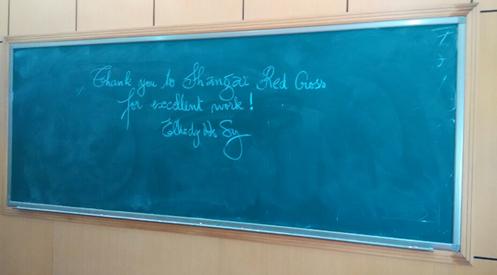 Thank you to Shangai Red Cross
for excellent work!
Elhadj As Sy